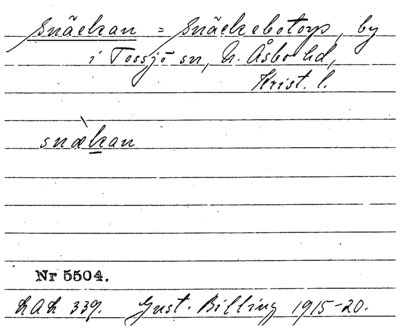 Snäckan = Snäckebotorp, by
i Tossjö sn, N. Åsbo hd,
Krist. l.
snækan
Nr 5504.
LAL 339. Gust. Billing 1915-20.